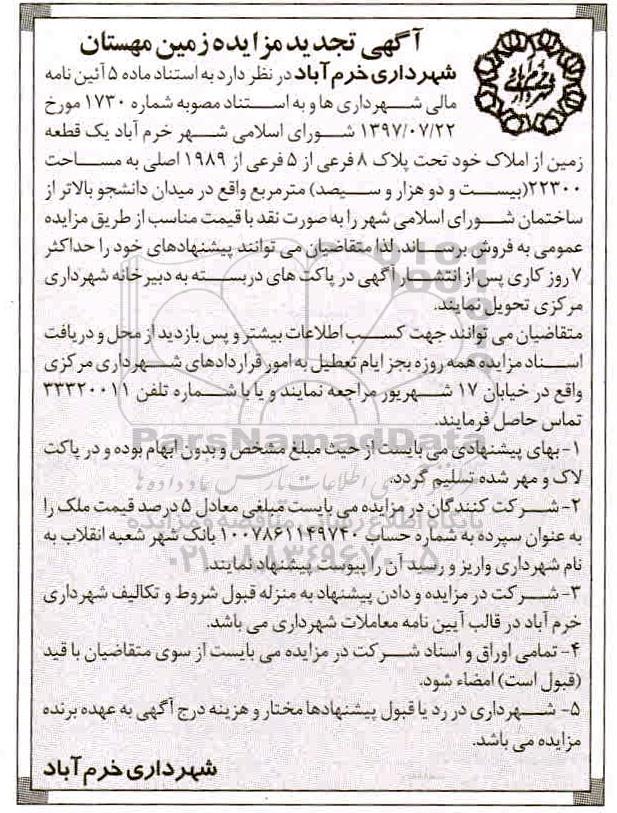 آگهی تجدید مزایده زمین مهستان
شهرداری خرم آباد در نظر دارد به استناد ماده ۵ آئین نامه
مالی شهرداری ها و به استناد مصوبه شماره ۱۷۳۰ مورخ
۱۳۹۷/۰۷/۲۲ شورای اسلامی شهر خرم آباد یک قطعه
زمین از املاک خود تحت پلاک ۸ فرعی از ۵ فرعی از ۱۹۸۹ اصلی به مساحت
۲۲۳۰۰(بیست و دو هزار و سیصد) مترمربع واقع در میدان دانشجو بالاتر از
ساختمان شورای اسلامی شهر را به صورت نقد با قیمت مناسب از طریق مزایده
عمومی به فروش برساند، لذا متقاضیان می توانند پیشنهادهای خود را حداکثر
۷ روز کاری پس از انتشار آگهی در پاکت های دربسته به دبیرخانه شهرداری
مرکزی تحویل نمایند.
متقاضیان می توانند جهت کسب اطلاعات بیشتر و پس بازدید از محل و دریافت
اسناد مزایده همه روزه بجز ایام تعطیل به امور قراردادهای شهرداری مرکزی
واقع در خیابان ۱۷ شهریور مراجعه نمایند و یا با شماره تلفن ۳۳۳۲۰۰۱۱
تماس حاصل فرمایند.
ParsNamadData
۱- بهای پیشنهادی می بایست از حیث مبلغ مشخص و بدون ابهام بوده و در پاکت
لاک و مهر شده تسلیم گردد.
۲- شرکت کنندگان در مزایده می بایست مبلغی معادل ۵ درصد قیمت ملک را
پایگاه اطلاع رسانی مناقصه و مزایده
به عنوان سپرده به شماره حساب ۱۰۰۷۸۶۱۱۴۹۷۴۰ بانک شهر شعبه انقلاب به
نام شهرداری واریز و رسید آن را پیوست پیشنهاد نمایند.
۰۲۱-۸۸۳۴۹۶۷۰-۵
۳- شرکت در مزایده و دادن پیشنهاد به منزله قبول شروط و تکالیف شهرداری
خرم آباد در قالب آیین نامه معاملات شهرداری می باشد.
۴- تمامی اوراق و اسناد شرکت در مزایده می بایست از سوی متقاضیان با قید
(قبول است) امضاء شود.
۵- شهرداری در رد یا قبول پیشنهادها مختار و هزینه درج آگهی به عهده برنده
مزایده می باشد.
شهرداری خرم آباد